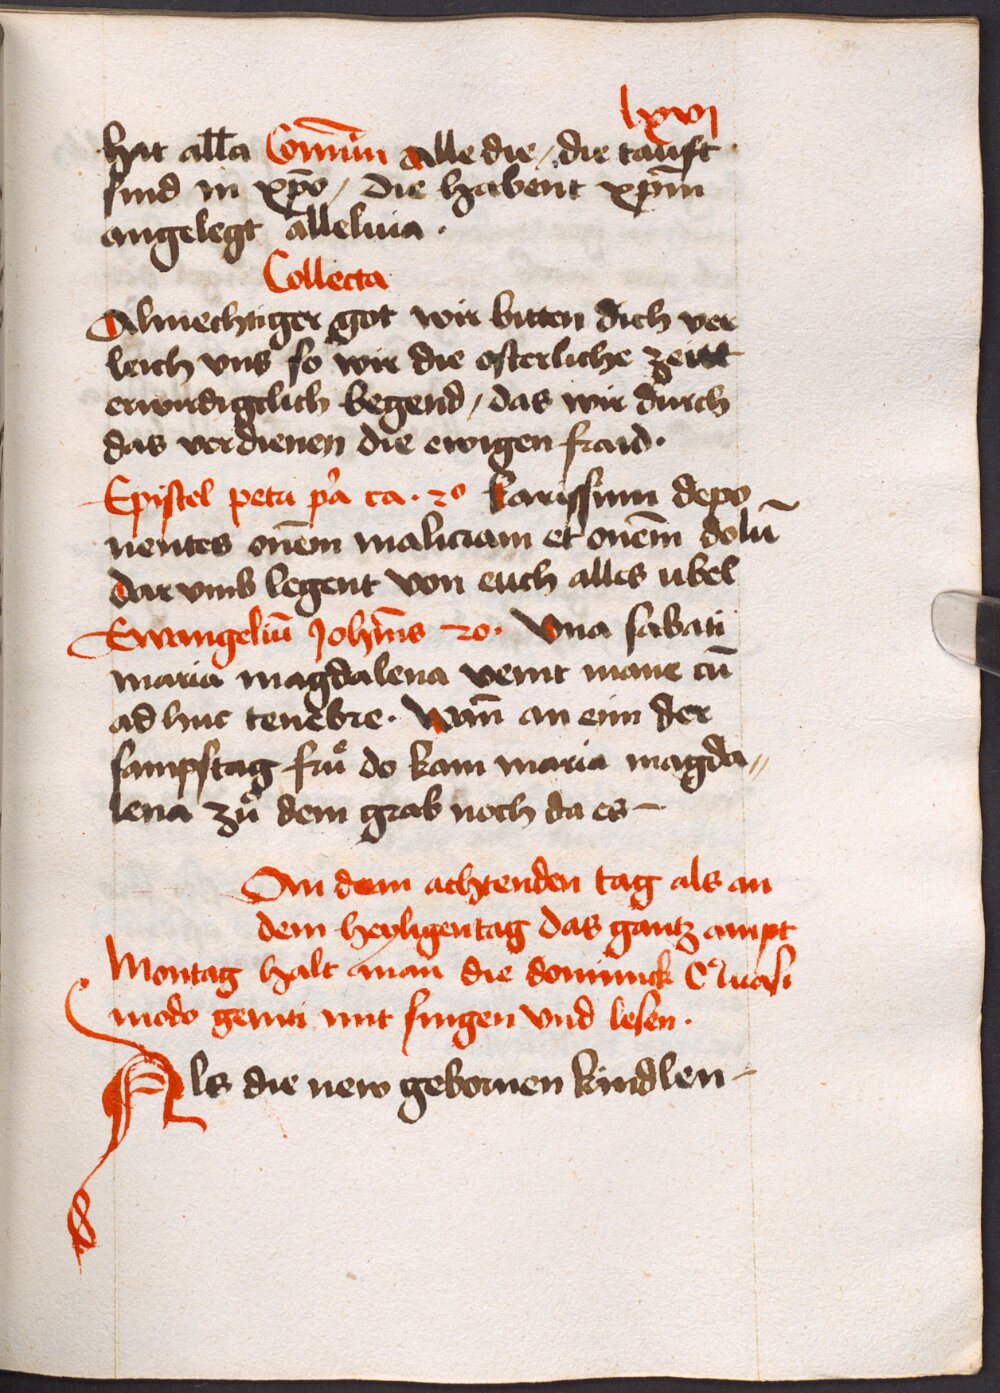 lxvi
hat all̄a Com̄un alle die / die tauft
sind in xp̄o / die habent xp̄m
angelegt alleluia .
Collecta
Almechtiger got wir bitten dich ver
leich vns so wir die osterliche zeitt
erwirdigclich begend / das wir durch
das verdienen die ewigen fraid .
Epistel petri p̄a ca . 2o karissimi depo
nentes om̄em maliciam et om̄em dolū
dar vmb legent von euch alles ubel
Ewangeliū Joh̄nis 20 . Vna sabati
maria magdalena venit mane cū
ad huc tenebre . Wan̄ an eim der
sampstag fruͦ do kam maria magda〃
lena zuͦ dem grab noch da es –
An dem achtenden tag als an
dem heyligentag das gantz ampt
Montag halt man die dominick Quasi
modo geniti mit singen vnd lesen .
Als die new gebornen kindlen –